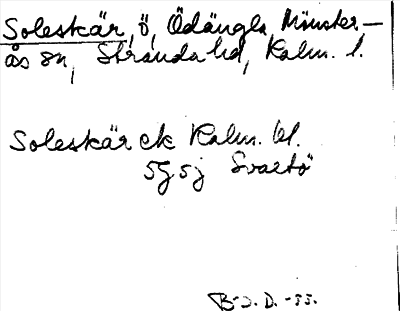 Soleskär, ö, Ödängla, Mönster-
ås sn, Stranda hd, Kalm. l.
Soleskär ek Kalm. bl.
5G5j Svartö
B-J. D. -33.